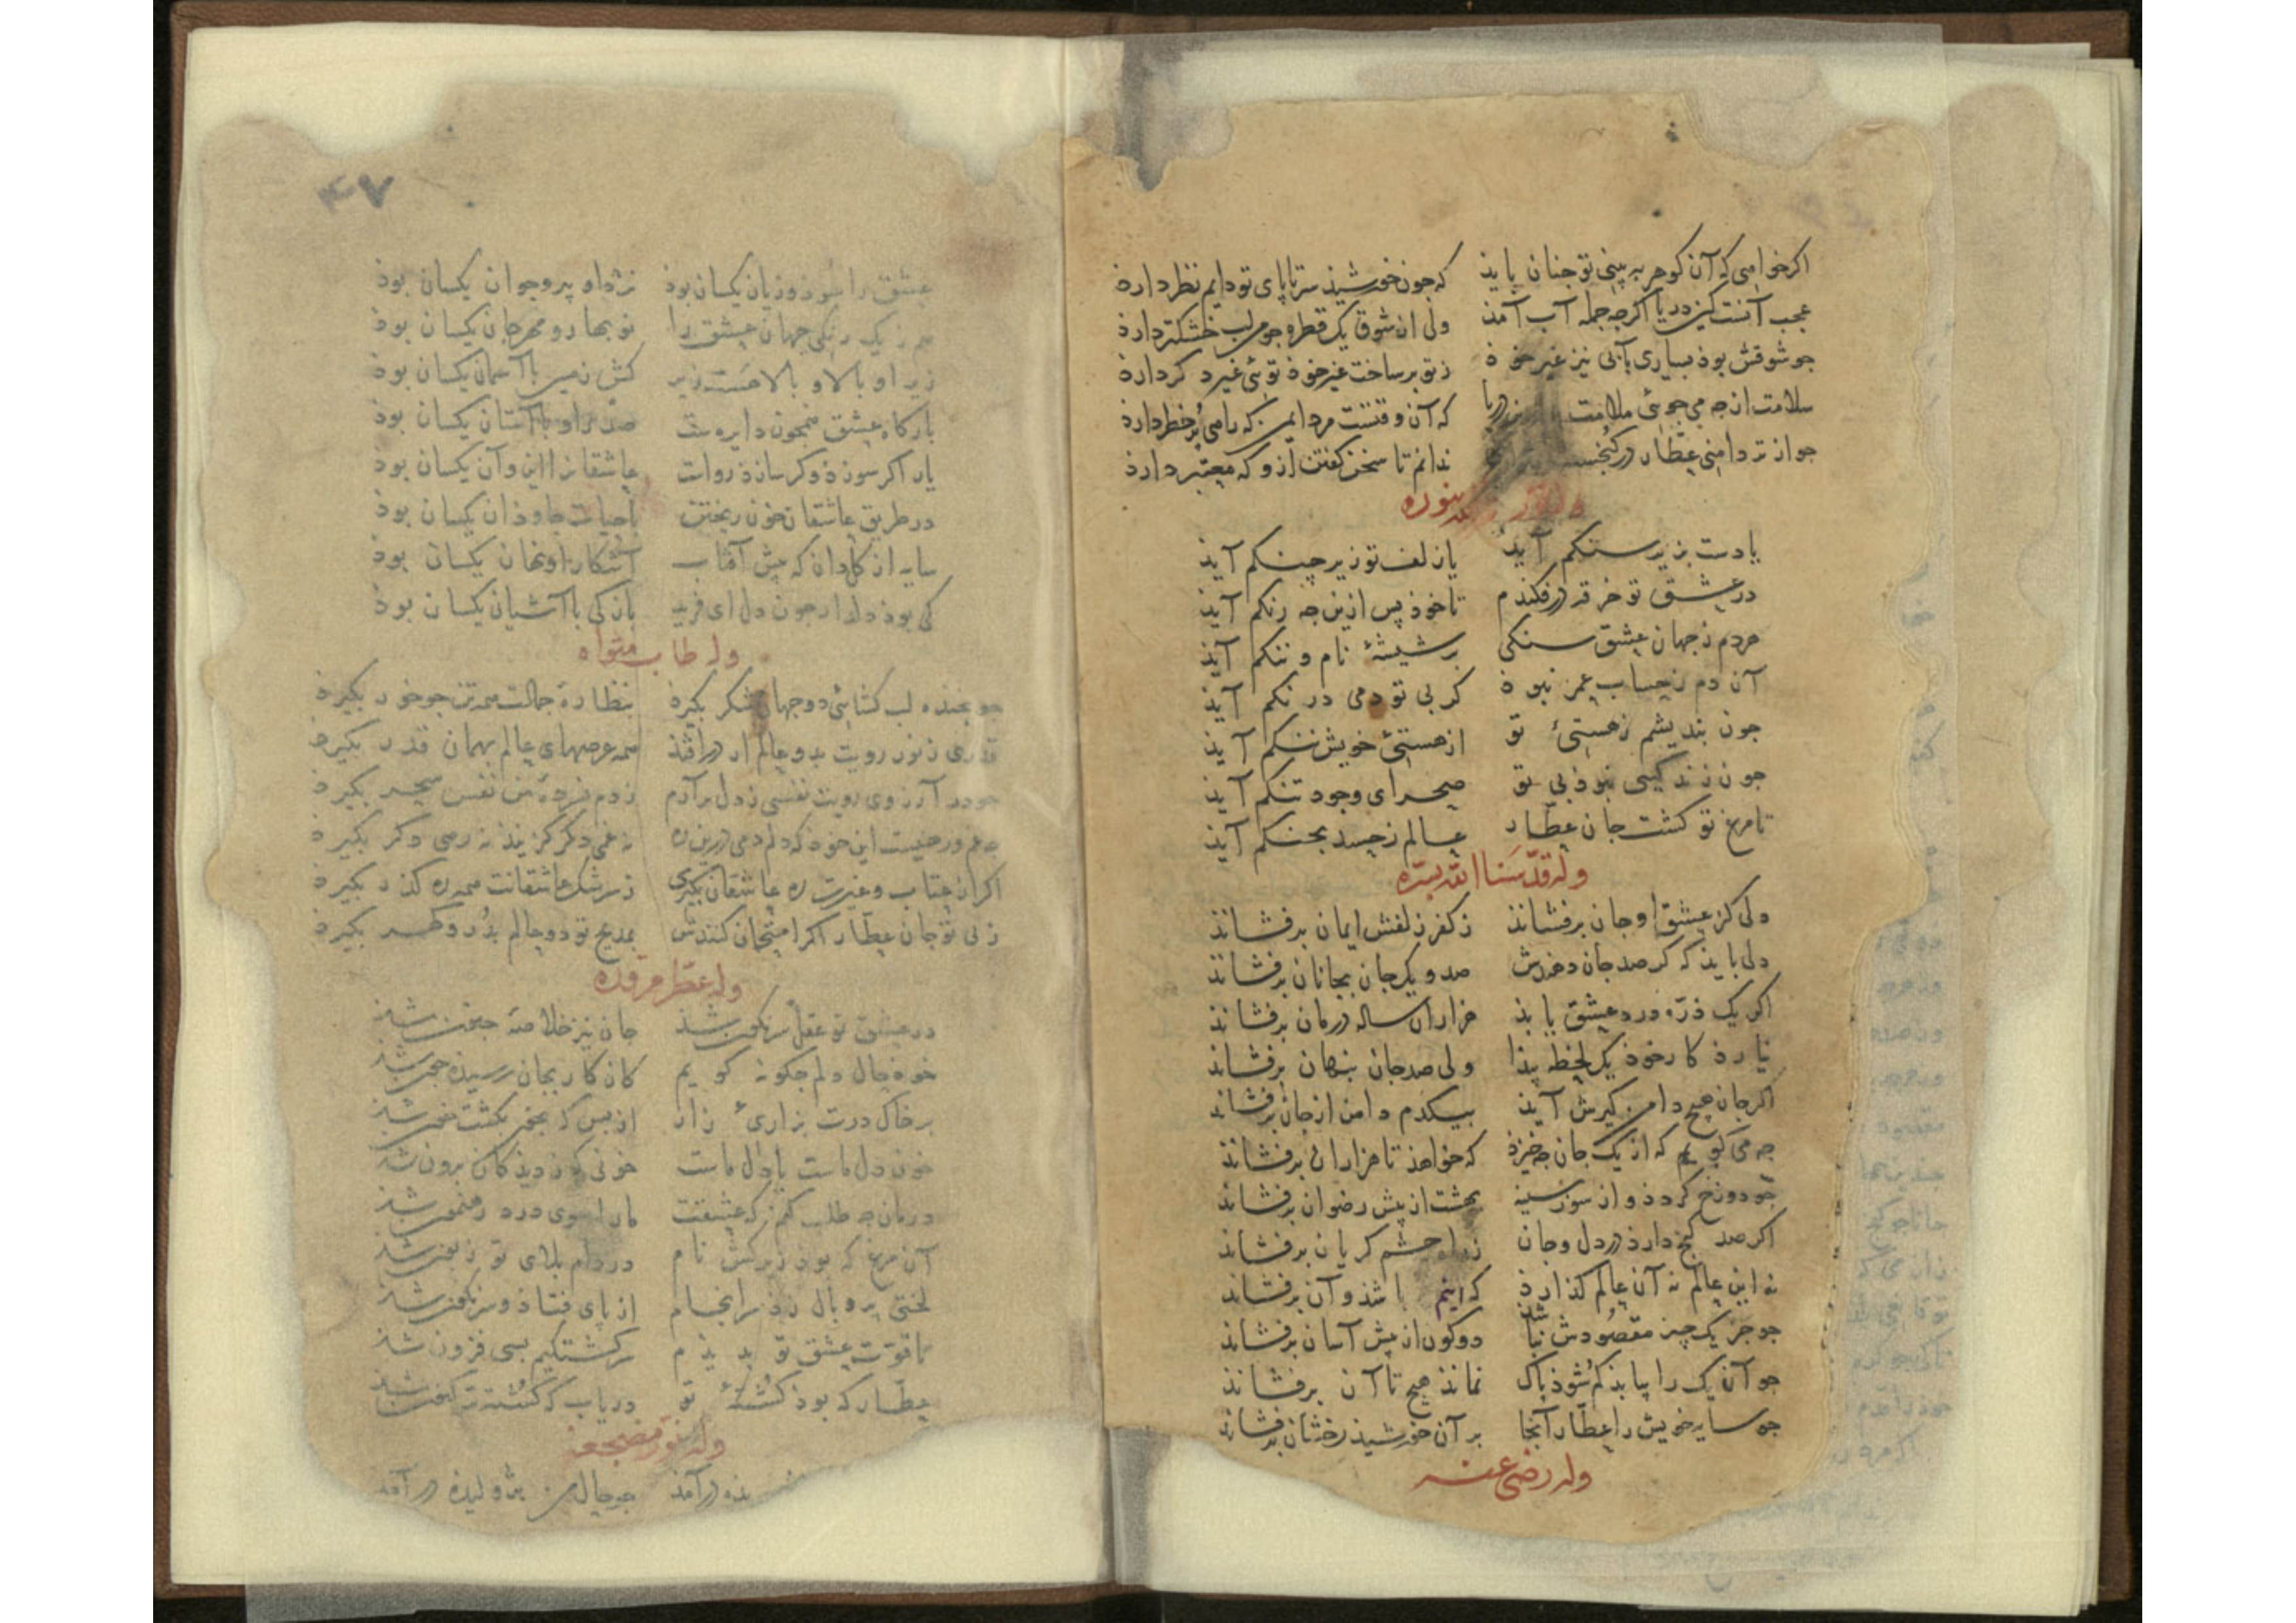 اکر خواهی که آن کوهر به بینی تو جنان باید که جون خورشیذ سرتاپای تو دایم نظر دارذ
عجب آنست کین دریا اکرجه جمله آب آمذ ولی ان شوق یک قطره جو من لب خشکتر دارذ
جو شوقش بوذ بسیاری بآبی نیز غیر خوذ ز تو بر ساخت غیر خوذ توئی غیر دکر دارذ
سلامت از جه می جوئی ملامت دریا که آن وقتست مردایمن که راهی پر خطر دارذ
جو از تر دامنی عطار در کنجست ندانم تا سخن کفتن ازو که معتبر دارذ
نوره
یا دست بزیر سنکم آیذ یا زلف تو زیر جنکم آیذ
در عشق تو خرقه درفکندم تا خوذ پس ازین جه رنکم آیذ
هردم ز جهان عشق سنکی بر شیشهٔ نام و ننکم آیذ
آن دم ز حساب عمر نبوذ کر بی تو دمی درنکم آیذ
جون بندیشم ز هستیٔ تو از هستیٔ خویش ننکم آیذ
جون زندکیی نبوذ بی تو صحرای وجود تنکم آیذ
تا مرغ تو کشت جان عطار عالم ز حسد بجنکم آیذ
وله قدسنا الله بسره
دلی کز عشق او جان برفشانذ ز کفر زلفش ایمان برفشانذ
دلی بایذ که کر صد جان دهندش صد و یک جان بجانان برفشانذ
اکر یک ذره درد عشق یابذ هزاران ساله درمان برفشانذ
نیارذ کار خوذ یک لحظه پیذا ولی صد جان بنهان برفشانذ
اکر جان هیچ دامن کیرش آیذ بیکدم دامن از جان برفشانذ
جه می کویم که از یک جان جه خیزذ که خواهذ تا هزاران برفشانذ
جو دوزخ کردذ و از سوز سینه بهشت از پیش رضوان برفشانذ
اکر صد کنج دارذ در دل و جان ز راه جشم کریان برفشانذ
نه این عالم نه آن عالم کذارذ که اینم باشذ و آن برفشاند
جو جز یک چیز مقصودش نباشذ دو کون از پیش آسان برفشاند
جو آن یک را بیابذ کم شوذ پاک نمانذ هیچ تا آن برفشانذ
جو سایه خویش را عطار آنجا بر آن خورشیذ رخشان برفشاند
وله رضی عنه
۴۷
عشق را سوذ و زیان یکسان بوذ نزد او پیر و جوان یکسان بوذ
هم ز یک رنکی جهان عشق را نوبهار و مهرجان یکسان بوذ
زیر او بالا و بالا هست زیر کش زمین با آسمان یکسان بوذ
بارکاه عشق همجون دایره ست صدر او با آستان یکسان بوذ
یار اکر سوزذ وکر سازذ رواست عاشقانرا این و آن یکسان بوذ
در طریق عاشقان خون ریختن با حیات جاوذان یکسان بوذ
سایه از کل دان که پیش آفتاب آشکارا و نهان یکسان بوذ
کی بوذ دلدار جون دل ای فرید باز کی با آشیان یکسان بوذ
وله طاب مثواه
جو بخنده لب کشایی دو جهان شکر بکیرذ بنظارهٔ جمالت همه تن جو خور بکیرذ
قدری ز نور رویت بدو عالم ار درافتذ همه عرصهای عالم بهمان قدر بکیرذ
جو در آرزوی رویت نفسی ز دل برآرم ز دم فسردهٔ من نفس سحر بکیرذ
جه غم و حیست این خوذ که دلم دمی درین ره نه غمی دکر کزیند نه رهی دکر بکیرذ
اکر از عتاب و غیرت ره عاشقان بکیری ز سرشک عاشقانت همه ره کذر بکیرذ
ز بی تو جان عطار اکر امتحان کنندش بمدح تو دو عالم بدر و کهر بکیرذ
وله عطر مرقده
در عشق تو عقل سرنکون شذ جان نیز خلاصهٔ جنون شذ
خوذ حال دلم جکونه کویم کان کار بجان رسیذه جون شذ
بر خاک درت بزاریٔ زار از بس که بخون بکشت خون شذ
خون دل ماست یا دل ماست خونی که ز دیذکان برون شذ
درمان جه طلب کنم که عشقت ما را سوی درد رهنمون شذ
آن مرغ که بوذ زیرکش نام در دام بلای تو زبون شذ
لختی پر و بال زد سرانجام از پای فتاذ و سرنکون شذ
تا قوت عشق تو بدیذم سرکشتکیم بسی فزون شذ
عطار که بوذ کشتهٔ تو دریاب که کشته ترکنون شذ
وله نور مضجعه
درآمذ جو حال من بژولیذه درآمذ